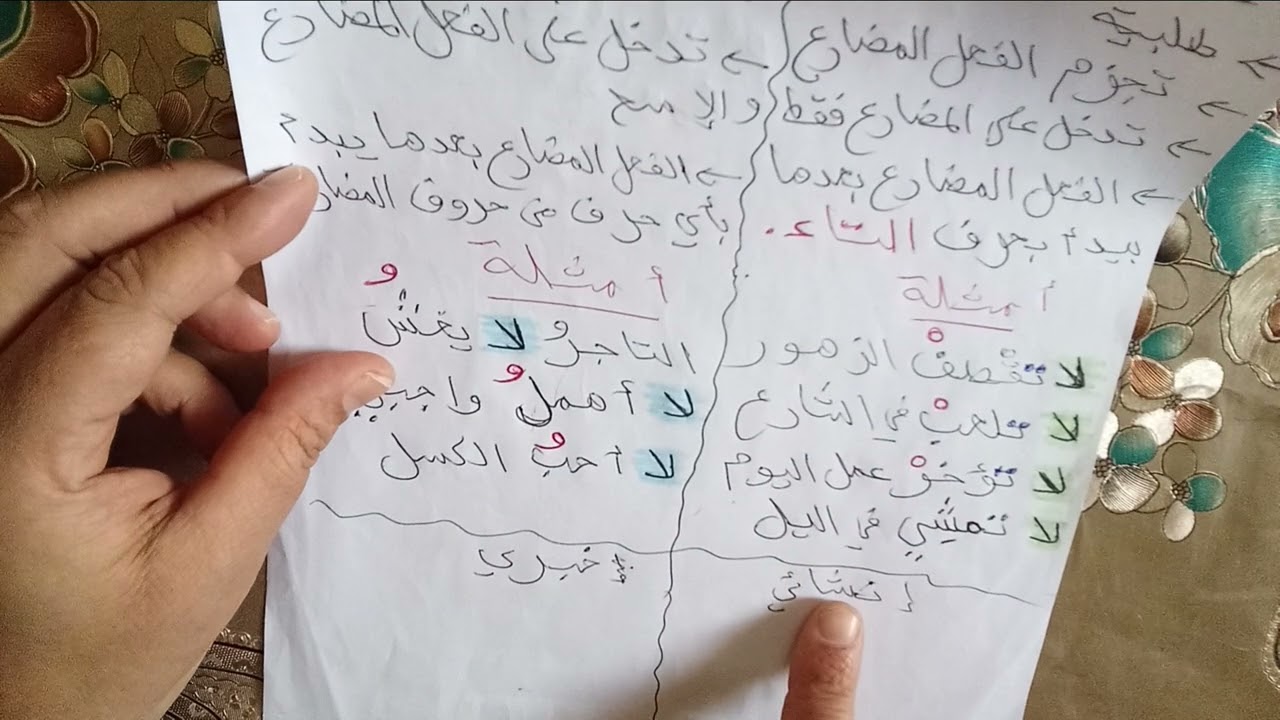 ← طلبية
← تجزم الفعل المضارع
← تدخل على المضارع فقط
← الفعل المضارع بعدما
يبدأ بحرف التاء.
أمثلة
لا تقطفْ الزهور
لا تلعبْ في الشارع
لا تؤخرْ عمل اليوم
لا تمشي في اليل
إنشائي
← تدخل على الفعل المضارع
والإسم
← الفعل المضارع بعدما يبدأ
بأي حرف من حروف
أمثلة
التاجرُ لا يغشُّ
لا أهملُ
لا أحبُ الكسل
* خبري